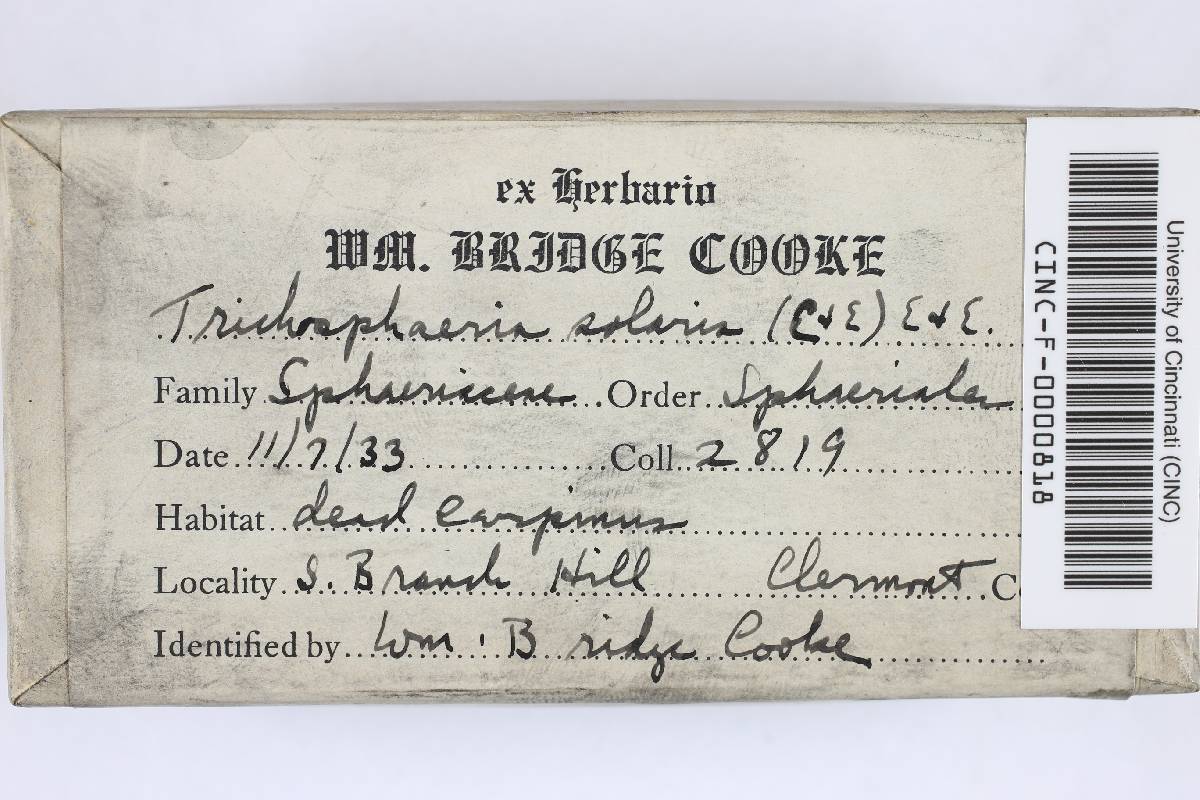 ex Herbario
WM. BRIDGE COOKE
Trichosphaeria solaris (C & E) E & E.
Family Sphaeriaceae Order Sphaeriales
Date 11/7/33 Coll. 2819
Habitat dead Carpinus
Locality S. Branch Hill Clermont C
Identified by Wm. Bridge Cooke
University of Cincinnati (CINC)
CINC-F-0000818